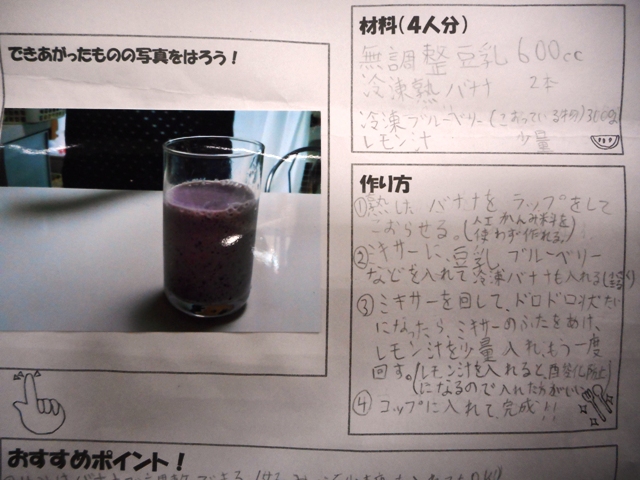 できあがったものの写真をはろう!
材料(4人分)
無調整豆乳 600cc
冷凍熟バナナ 2本
冷凍ブルーベリー(こおっているもの)300g
レモン汁 少量
作り方
①熟したバナナを、ラップをして
こおらせる。(人工かんみ料を使わず作れる。)
②ミキサーに、豆乳、ブルーベリー
などを入れて冷凍バナナも入れる
③ミキサーを回して、ドロドロ状たい
になったら、ミキサーのふたをあけ、
レモン汁を少量入れ、もう一度
回す。(レモン汁を入れると、酸化防止
になるので入れた方がいい
④コップに入れて、完成!!
おすすめポイント!